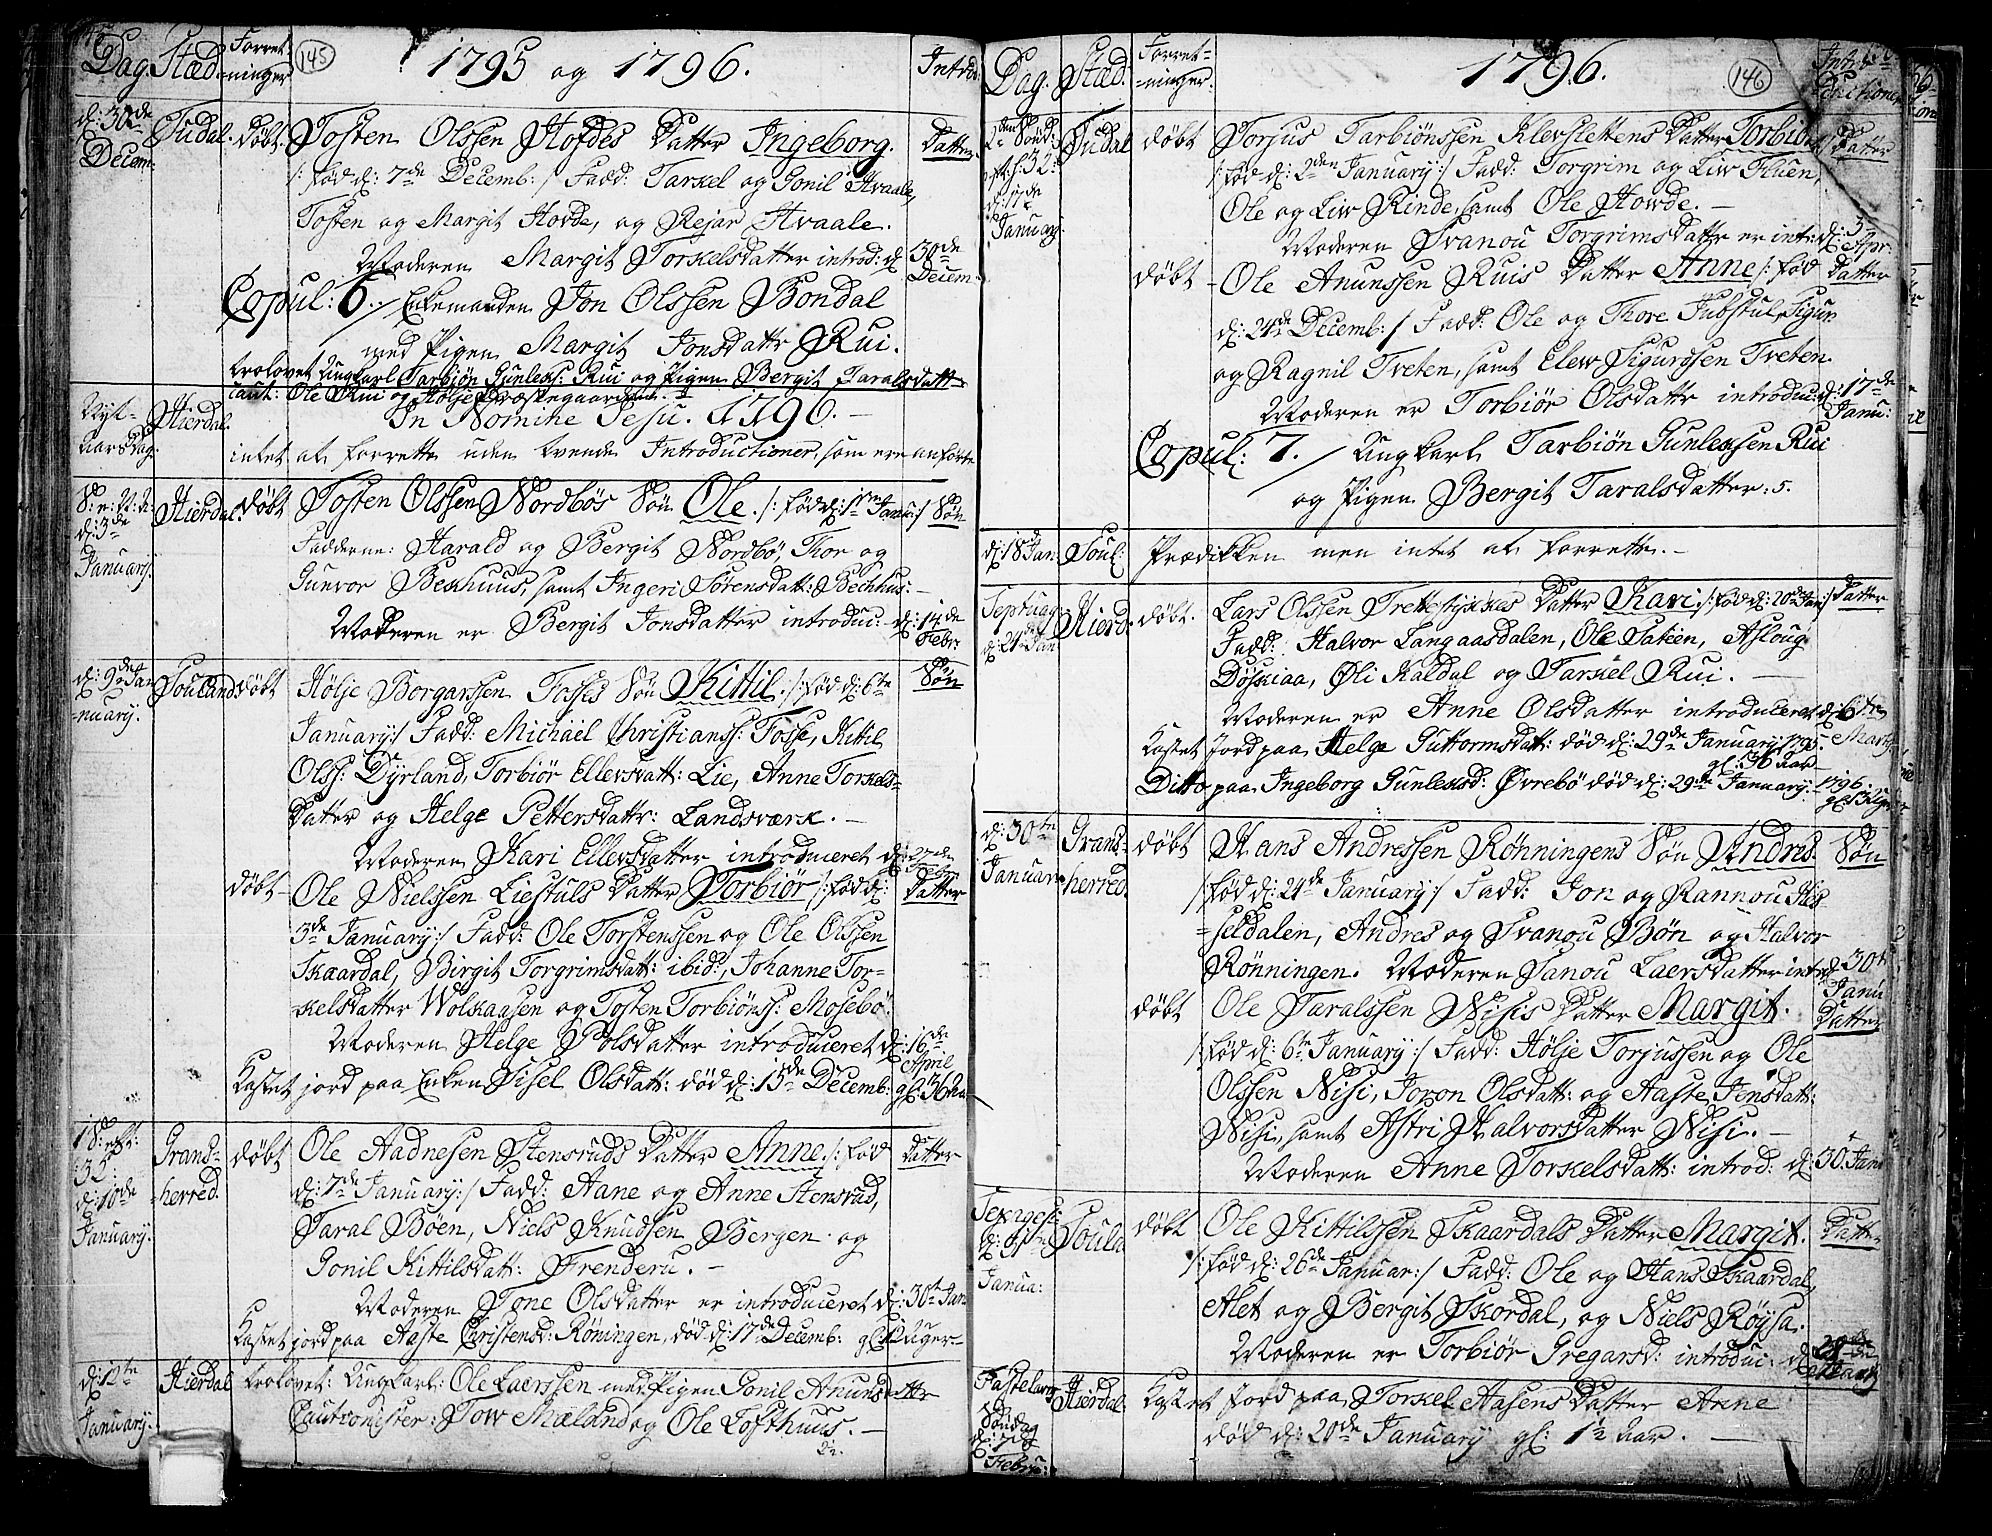 Dag. Stæd. Forret-ninger. 145 1795 og 1796. Introd:
d: 30de Decem: Tudal. døbt. Tosten Olssen Hofdes Datter Ingeborg. Datter
/: fød d: 7de Decemb: / Fadd: Tarkel og Gonil Hvaale,
Tosten og Margit Hovde, og Rejar Hvaale.
Moderen Margit Torkelsdatter introd: d: 30de Decem:
Copul: 6. / Enkemanden Jon Olssen Bondal
med Pigen Margit Jonsdattr Rui.
trolovet Ungkarl Tarbiøn Gunleks: Rui og Pigen Bergit Taralsdattr
caut: Ole Rui og Hølje Præstegaarden.
Nyt-Aarsdag. Hierdal. In Nomine Jesu. 1796.
intet at forrette uden tvende Introductioner, som ere anførte
S: e: N: A: d: 3de January. Hierdal. døbt Tosten Olssen Nordbøs Søn Ole. /: fød d: 1ste Janu: / Søn
Fadderne: Harald og Bergit Nordbø, Thor og
Gunvor Bekhuus, samt Ingeri Sørensdatt: Bechhus:
Moderen er Bergit Jonsdatter introdu: d: 14de Febr:
d: 9de Januarij. Souland døbt Hølje Borgarssen Fosses Søn Kittil. /: fød d: 6te Søn
January: / Fadd: Michael Christianss: Fosse, Kittil
Olss: Dyrland, Torbiør Ellevsdatt: Lie, Anne Torkels-
Datter og Helge Pettersdattr: Landsværk.
Moderen Kari Ellevsdatter introduceret d: 27de Febr:
døbt Ole Nielssen Liestuls Datter Torbiør /: fød d: Datter
3de January: / Fadd: Ole Torstenssen og Ole Olssen
Skaardal, Birgit Torgrimsdatt: ibid:, Johanne Tor-
kelsdatter Wolkaasen og Tosten Torbiønss: Mosebø.
Moderen Helge Polsdatter introduceret d: 16de April
Kastet jord paa Enken Sisel Olsdatt: død d: 15de Decemb: gl: 76 Aar
1 S: eft: 3K: d: 10de January. Grans-herred. døbt Ole Aadnesen Stensruds Datter Anne. /: fød Datter
d: 7de January: / Fadd: Aane og Anne Stensrud,
Taral Bøen, Niels Knudsen Bergen og
Gonil Kittilsdatt: Frenderu.
Moderen Tone Olsdatter er introduceret d: 30te Jan:
Kastet jord paa Aaste Christensd: Røningen, død d: 17de Decemb: gl: 12 Uger
d: 12te January. Hierdal trolovet: Ungkarl: Ole Laerssen med Pigen Gonil Anunsdattr
Cautionister: Tow Mæland og Ole Tofthuus.
Dag. Stæd. Forret-ninger. 1796. 146 Introductioner
2den Sønd: eft: h: 3K: d: 17de January. Tudal døbt Torjus Tarbiønssen Klevslettens Datter Torbiør Datter
/: fød d: 2den January: / Fadd: Torgrim og Liw Fluen,
Ole og Liw Rinde, samt Ole Howde.
Moderen Svanou Torgrimsdattr er int: d: 3 Apr:
døbt Ole Anunssen Ruis Datter Anne /: fød Datter
d: 24de Decemb: / Fadd: Ole og Thore Jubstul, Sigur
og Ragnil Treten, samt Elew Sigurssen Treten
Moderen er Torbiør Olsdattr introdu: d: 17de Janu:
Copul: 7. / Ungkarl Tarbiøn Gunlekssen Rui
og Pigen Bergit Taralsdatter: 5.
d: 18 Jan: Soul: Prædikken men intet at forrette.
Septuag: d: 24 Jan Hierd: døbt. Lars Olssen Trettestykkes Datter Kari /: fød d: 20de Jan: / Datter
Fadd: Halvor Langaasdalen, Ole Sateen, Asloug
Døskiaa, Øli Kaldal og Tarkel Rui.
Moderen er Anne Olsdatter introduceret d: 6te Marty
Kastet Jord paa Helge Guttormsdatt: død d: 29de January 1795. gl: 56 Aar
Ditto paa Ingeborg Gunleksd: Øvrebø død d: 29de January: 1796.
d: 30te Januar Grans-herred. døbt Hans Andressen Rønningens Søn Andres Søn
/: fød d: 24de January: / Fadd: Jon og Rannou Hes-
seldalen, Andres og Svanou Bøn og Halvor
Rønningen. Moderen Sanou Laersdatter intr: d: 30te Janu
døbt Ole Taralssen Nisis Datter Margit. Datter
/: fød d: 6te January: / Fadd: Hølje Torjussen og Ole
Olssen Nisi, Joron Olsdatt: og Aaste Jensdatt:
Nisi, samt Astri Halvorsdatter Nisi.
Moderen Anne Torkelsdatt: introd: d: 30. Janu
Sexagesi: d: 31te Janua: Soula døbt Ole Kittilssen Skaardals Datter Margit. Datter
/: fød d: 26de Januar: / Fadd: Ole og Hans Skaardal,
Alet og Bergit Skordal, og Niels Røysa.
Moderen er Torbiør Gregarsd: introdu: d:
Fastelavns Søndag d: 7de Febru: Hierdal Kastet Jord paa Torkel Aasens Datter Anne
død d: 20de January gl: 1½ Aar.